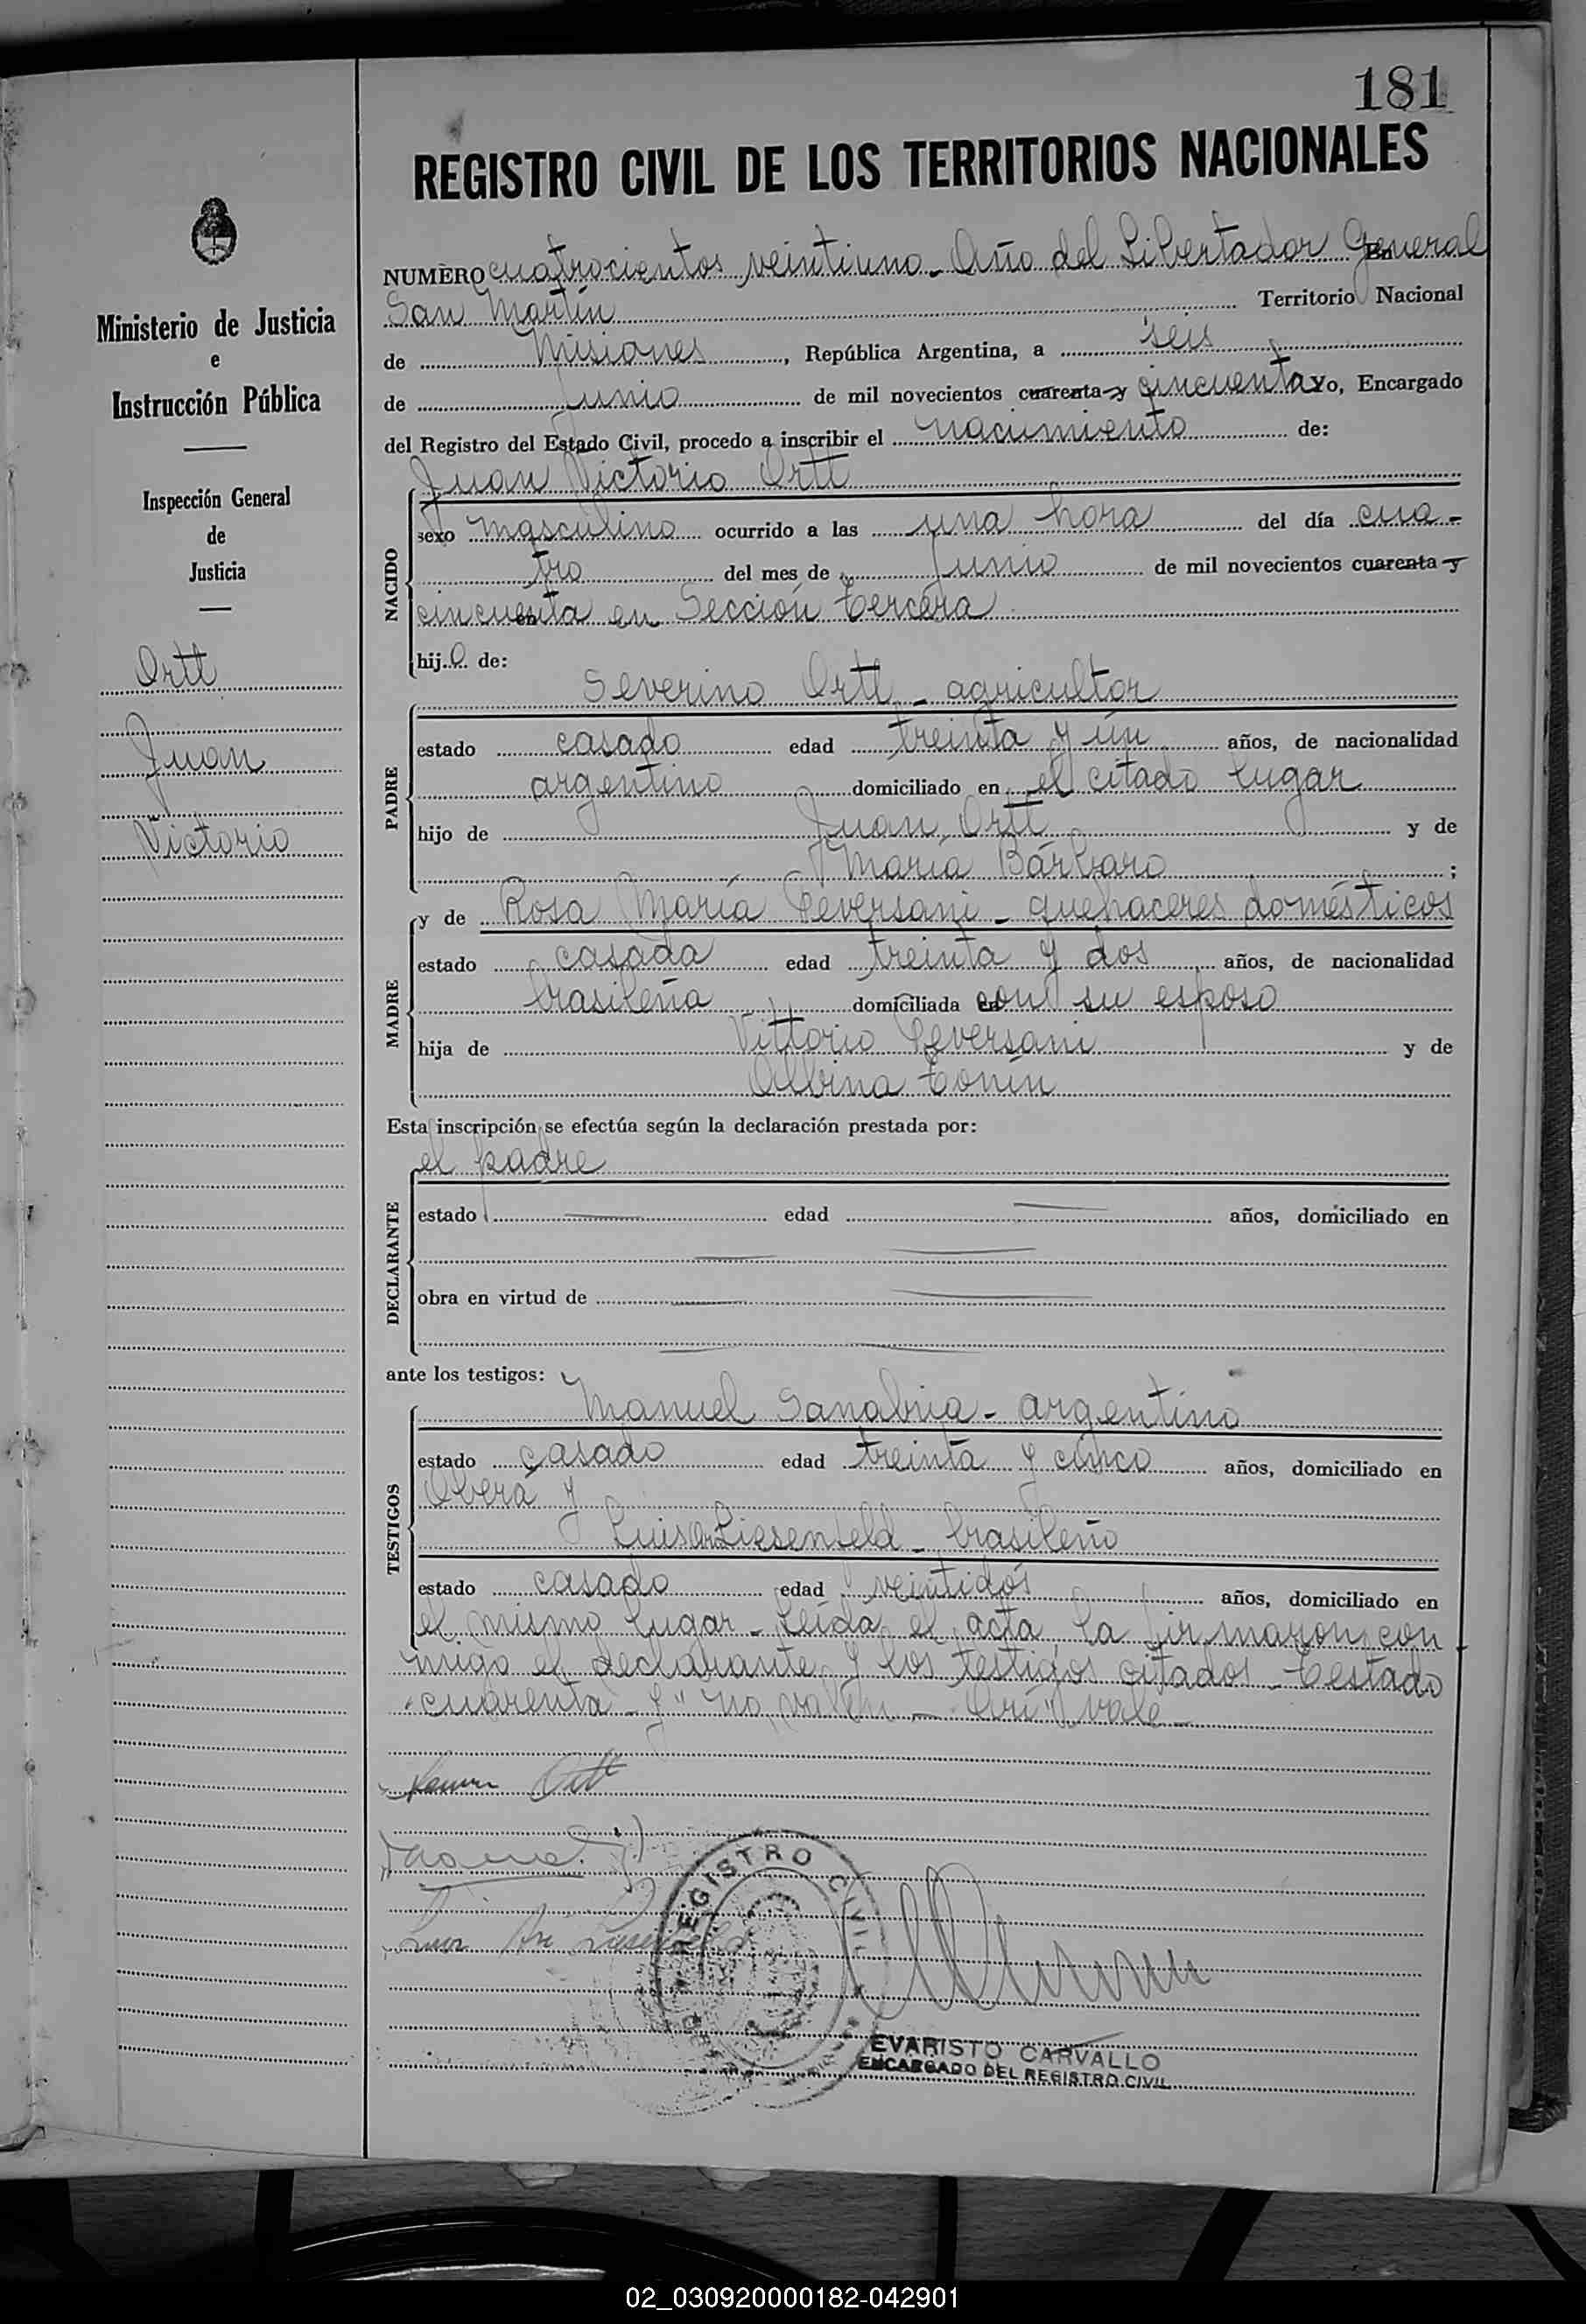 181
REGISTRO CIVIL DE LOS TERRITORIOS NACIONALES
NUMERO cuatrocientos veintiuno - Año del Libertador General
San Martín Territorio Nacional
de Misiones, República Argentina, a seis
de Junio de mil novecientos cuarenta y cincuenta Yo, Encargado
del Registro del Estado Civil, procedo a inscribir el nacimiento de:
Juan Victorio Ortt
NACIDO
sexo masculino ocurrido a las una hora del día cua-
tro del mes de Junio de mil novecientos cuarenta y
cincuenta en Sección tercera
hijo de:
Severino Ortt - agricultor
PADRE
estado casado edad treinta y un años, de nacionalidad
argentino domiciliado en el citado lugar
hijo de Juan Ortt y de
María Bárbaro ;
y de Rosa María Peversani - quehaceres domésticos
MADRE
estado casada edad treinta y dos años, de nacionalidad
brasileña domiciliada con su esposo
hija de Vittorio Peversani y de
Albina Tonín
Esta inscripción se efectúa según la declaración prestada por:
el padre
DECLARANTE
estado edad años, domiciliado en
obra en virtud de
ante los testigos:
Manuel Sanabria - argentino
TESTIGOS
estado casado edad treinta y cinco años, domiciliado en
Oberá y
Luis Liesenfeld - brasileño
estado casado edad veintidós años, domiciliado en
el mismo lugar - Leída el acta, la firmaron con
migo el declarante y los testigos citados - Testado
"cuarenta - y" no valen - "Ari" vale -
Ortt
REGISTRO CIVIL
EVARISTO CARVALLO
ENCARGADO DEL REGISTRO CIVIL
Ministerio de Justicia
e
Instrucción Pública
Inspección General
de
Justicia
Ortt
Juan
Victorio
02_030920000182-042901